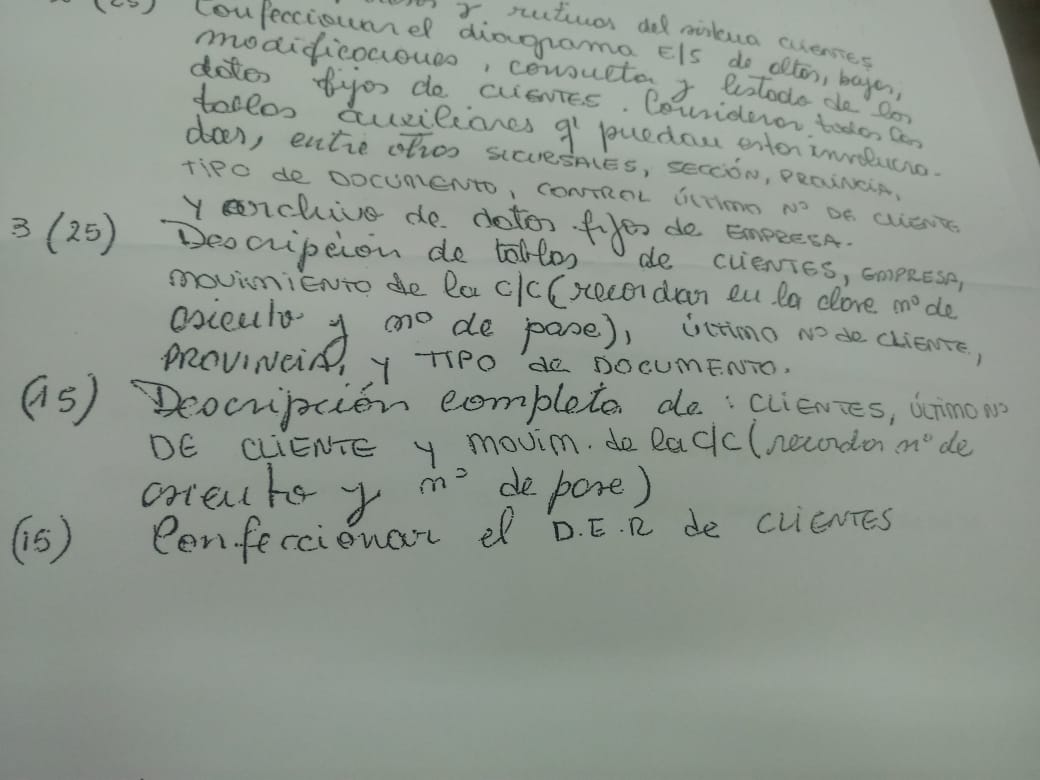 y rutinas del sistema CLIENTES
(25) Confeccionar el diagrama E/S de altas, bajas,
modificaciones, consulta y listado de los
datos fijos de CLIENTES. Considerar todas las
tablas auxiliares q' puedan estar involucra-
das, entre otros SUCURSALES, SECCIÓN, PROVINCIA,
TIPO de DOCUMENTO, CONTROL ÚLTIMO Nº DE CLIENTE
Y archivo de datos fijos de EMPRESA.
3 (25) Descripción de tablas de CLIENTES, EMPRESA,
MOVIMIENTO de la C/C (recordar en la clave nº de
asiento y nº de pase), ÚLTIMO Nº de CLIENTE,
PROVINCIA, Y TIPO de DOCUMENTO.
(15) Descripción completa de: CLIENTES, ÚLTIMO Nº
DE CLIENTE y MOVIM. de la c/c (recordar nº de
asiento y nº de pase)
(15) Confeccionar el D.E.R de CLIENTES